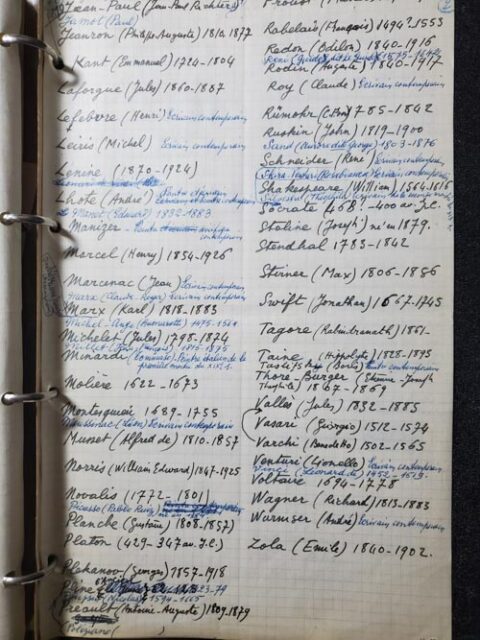 Jean-Paul (Jean-Paul Richter)
Jamot (Paul)
Jeanron (Philippe-Auguste) 1810-1877
Kant (Emmanuel) 1724-1804
Laforgue (Jules) 1860-1887
Lefebvre (Henri) Ecrivain contemporain
Leiris (Michel) Ecrivain contemporain
Lénine (1870-1924)
Lhote (André) Peintre et écrivain
Le Manet (Edouard) 1832-1883
Manizer - Peintre
contemporain
Marcel (Henry) 1854-1926
Marcenac (Jean) Ecrivain contemporain
Marx (Claude-Roger) Ecrivain contemporain
Marx (Karl) 1818-1883
Michel-Ange (Buonarotti) 1475-1564
Michelet (Jules) 1798-1874
Millet 1815-1875
Minardi (Tommaso) Peintre italien de la
première moitié du XIX s.
Molière 1622-1673
Montesquieu 1689-1755
Moussinac (Léon) Ecrivain contemporain
Musset (Alfred de) 1810-1857
Norris (William Edward) 1847-1925
Novalis (1772-1801)
Picasso (Pablo Ruiz)
Planche (Gustave) 1808-1857)
Platon (429-347 av. J.C.)
Plekanov (Georges) 1857-1918
Pline 23-79
Poussin (Nicolas) 1594-1665
Préault (Antoine-Auguste) 1809-1879
Proust
Rabelais (François) 1494?-1553
Redon (Odilon) 1840-1916
Reni (Guido)
Rodin (Auguste) 1840-1917
Roy (Claude)
Rümohr (C. 1785-1842
Ruskin (John) 1819-1900
Sand (Aurore dite George) 1803-1876
Schneider (René) Ecrivain contemporain
Shakespeare (William) 1564-1616
Socrate (468?-400 av. J.C.
Staline (Joseph) né en 1879.
Stendhal 1783-1842
Stirner (Max) 1806-1856
Swift (Jonathan) 1667-1745
Tagore (Rabindranath) 1861-
Taine (Hippolyte) 1828-1893
Taslitzky (Boris) Peintre contemporain
Thoré-Burger (Etienne-Joseph
Théophile) 1807-1869
Vallès (Jules) 1832-1885
Vasari (Giorgio) 1512-1574
Varchi (Benedetto) 1502-1565
Venturi (Lionello) Ecrivain contemporain
Vinci (Léonard de) 1452-1519
Voltaire 1694-1778
Wagner (Richard) 1813-1883
Wurmser (André) Ecrivain contemporain
Zola (Emile) 1840-1902.